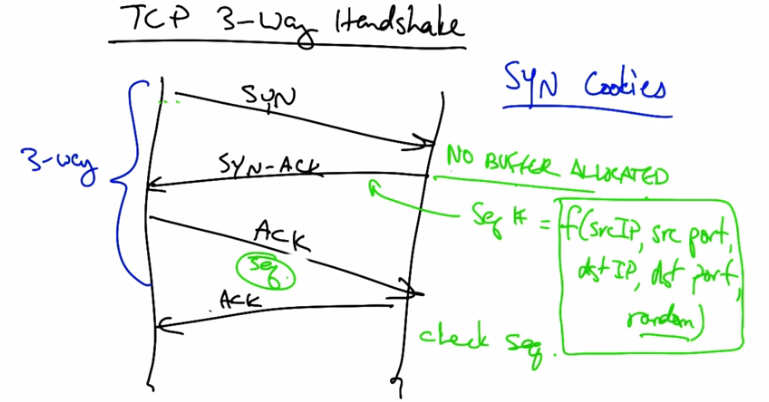 TCP 3-Way Handshake
SYN Cookies
SYN
3-way
SYN-ACK
NO BUFFER ALLOCATED
Seq # = f(srcIP, src port,
dst IP, dst port,
random)
ACK
Seq.
ACK
check seq.